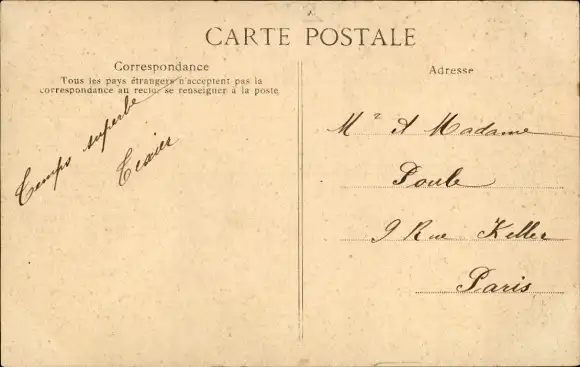 CARTE POSTALE
Correspondance
Tous les pays étrangers n'acceptent pas la
correspondance au recto, se renseigner à la poste
Temps superbe
Adresse
Mr et Madame
Poule
9 Rue Keller
Paris